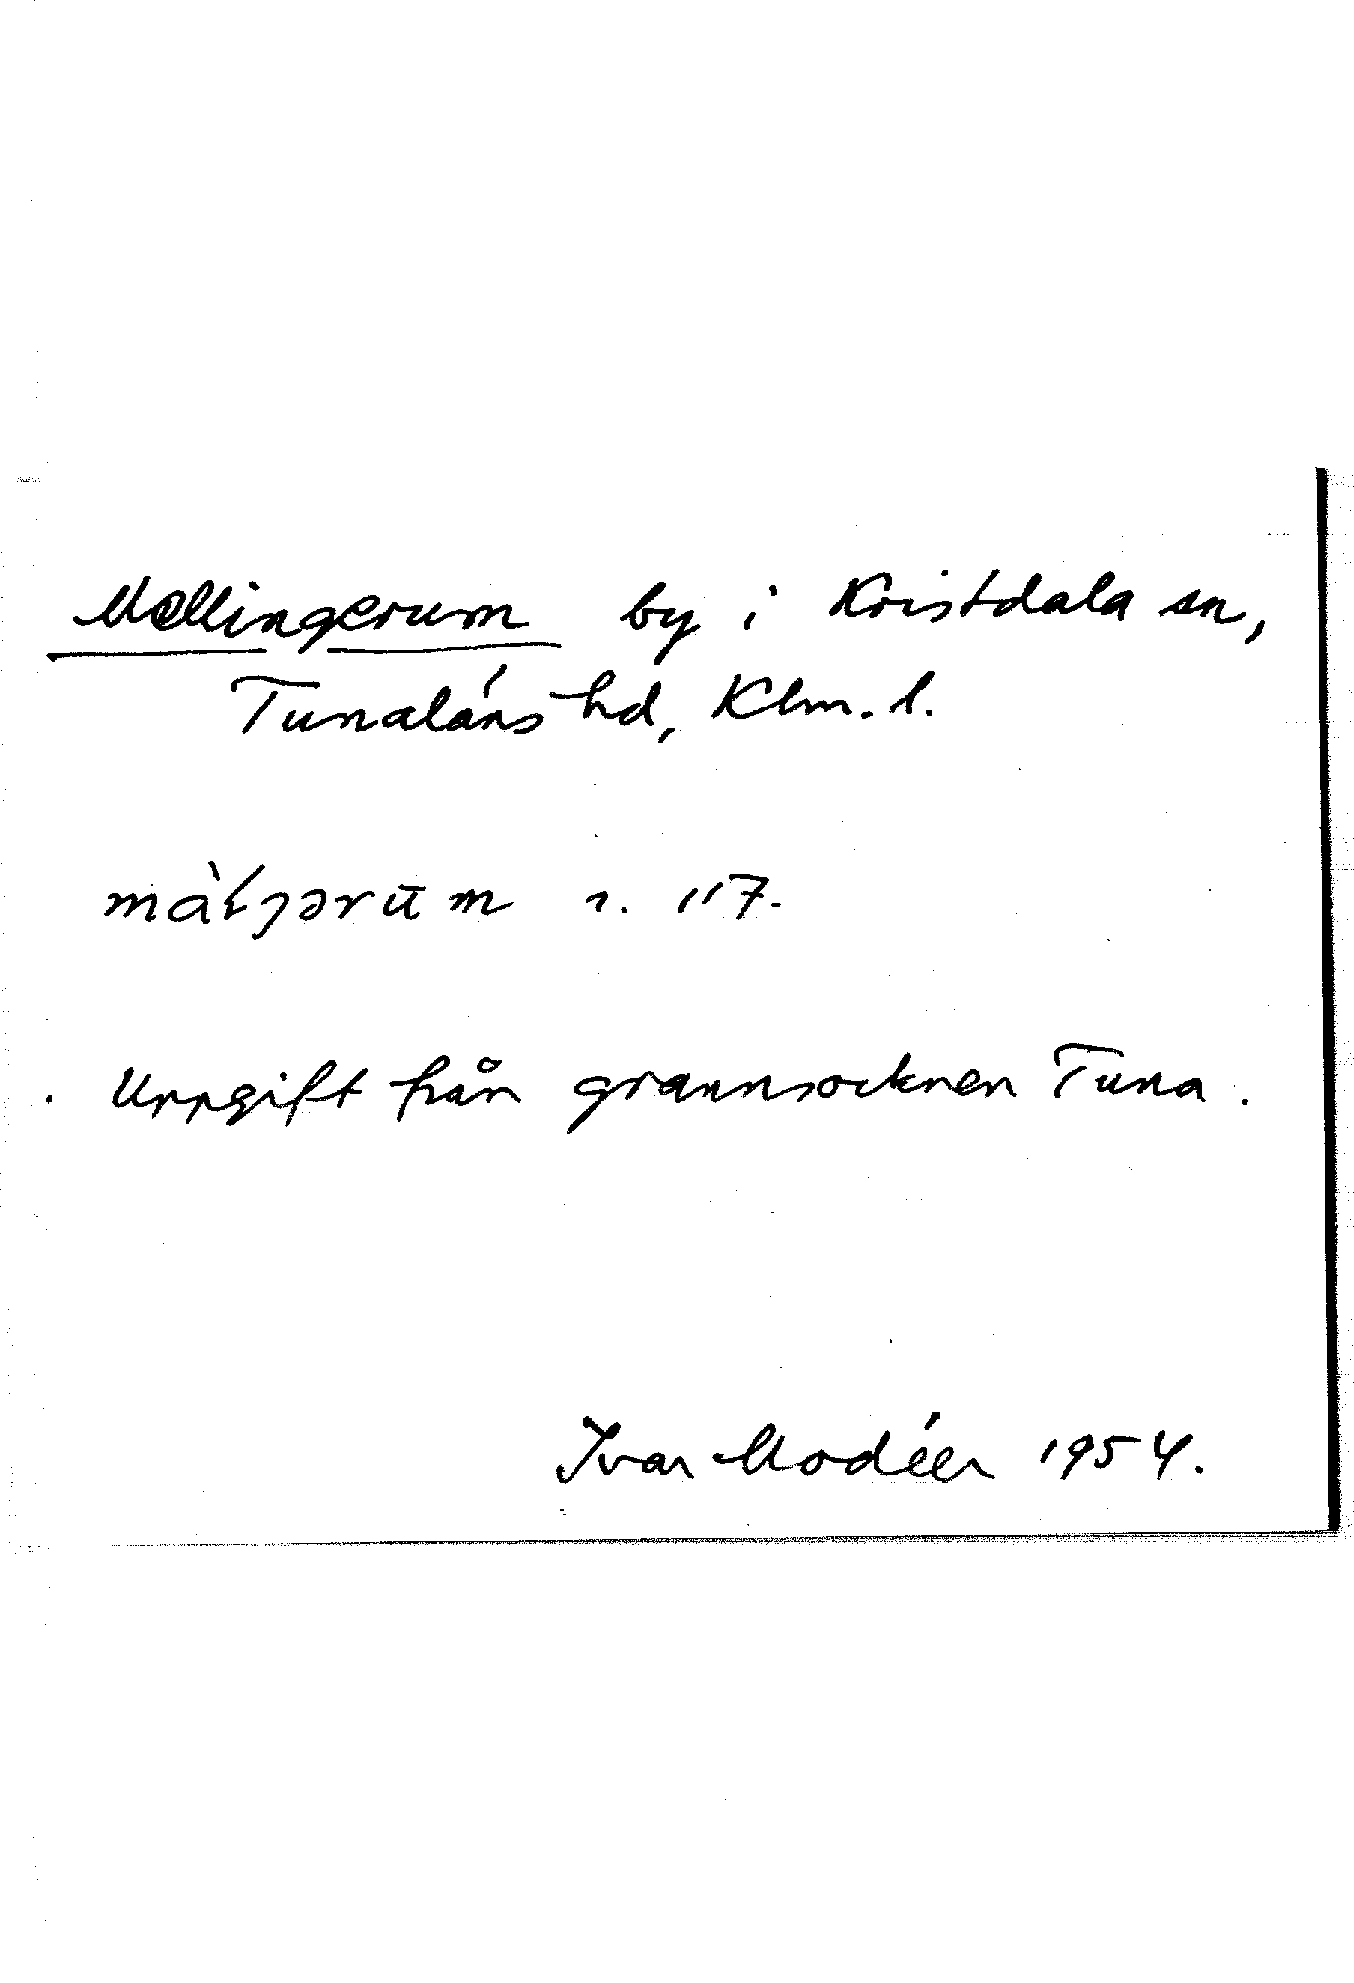 Mællingerum by i Kristdala sn,
Tunaläns hd, Klm. l.
r. 117.
Uppgift från grannsocknen Tuna.
Ivar Modéer 1954.